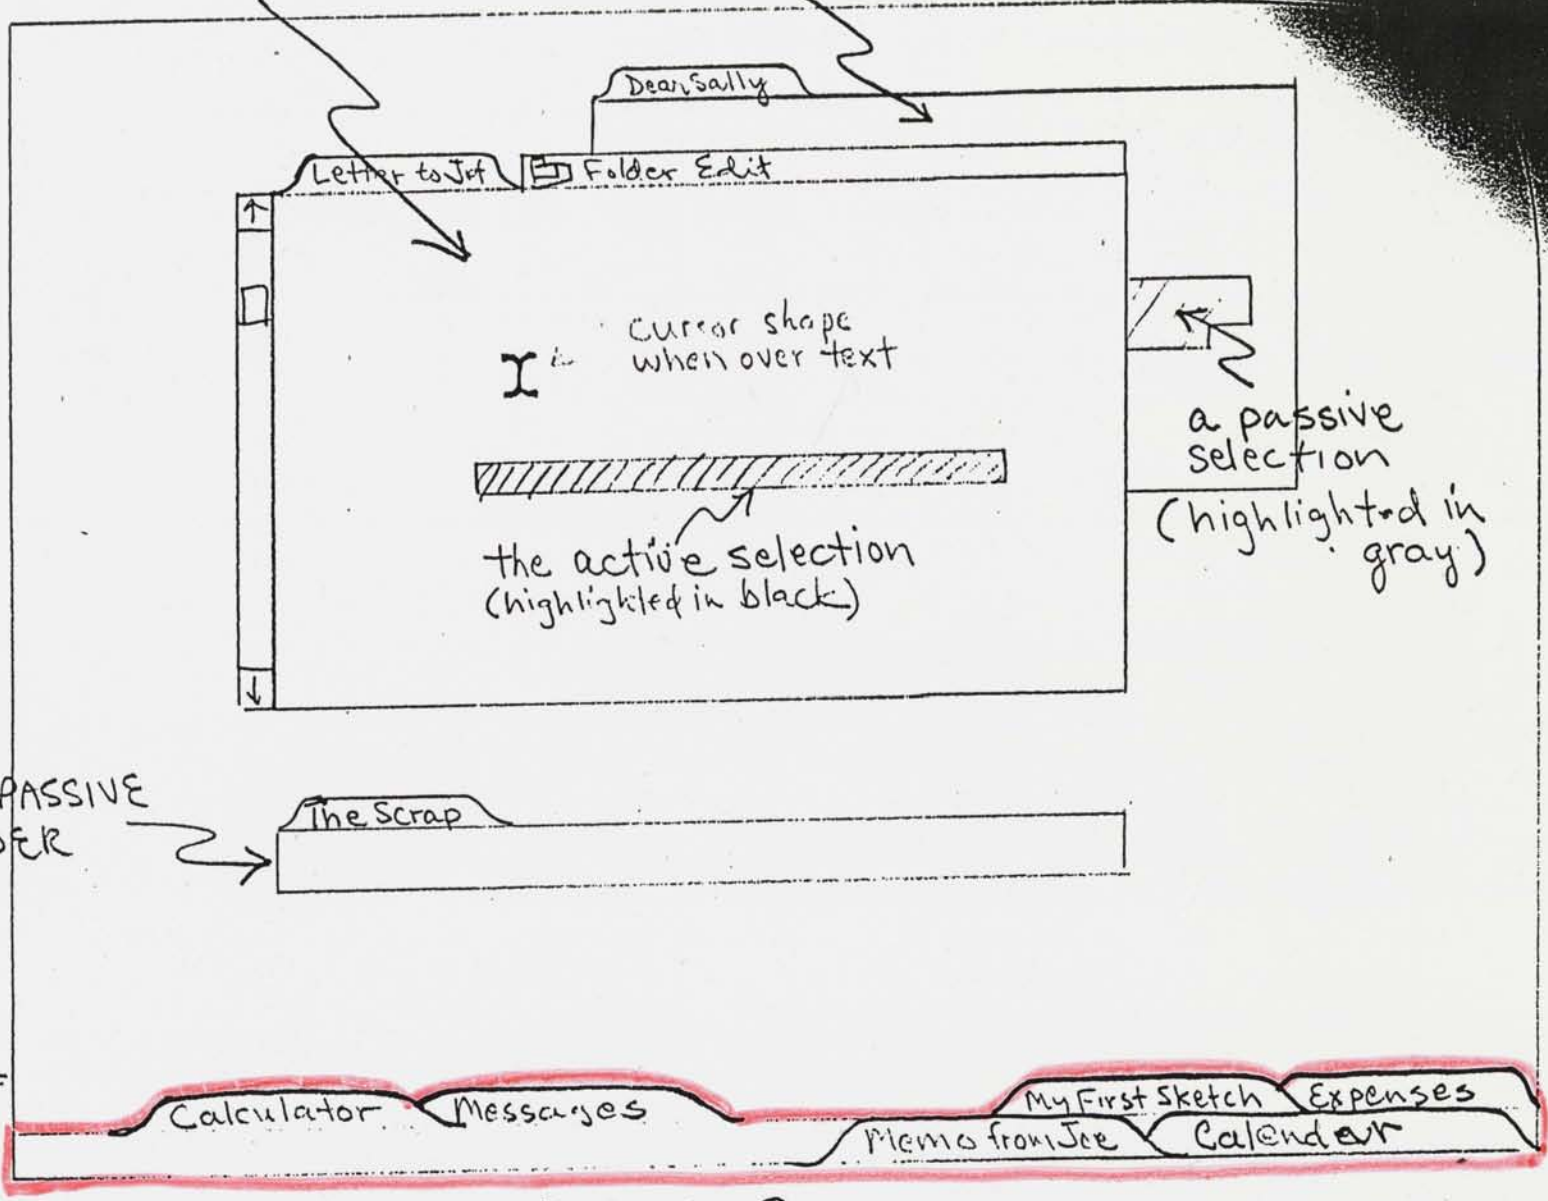 Dear Sally
Letter to Jef
Folder Edit
cursor shape
when over text
a passive
selection
(highlighted in
gray)
the active selection
(highlighted in black)
PASSIVE
The Scrap
Calculator
Messages
My First Sketch
Expenses
Memo from Joe
Calendar